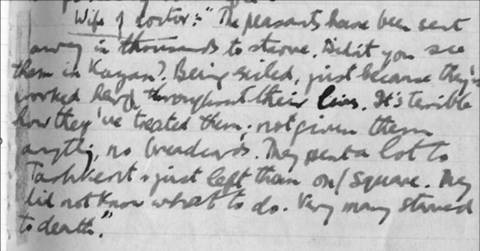 Wife of doctor:- "The peasants have been sent
away in thousands to starve. Didn't you see
them in Kazan? Being exiled, just because they
worked hard throughout their lives. It's terrible
how they've treated them; not given them
anything, no breadcards. They sent a lot to
Tashkent & just left them on / square. They
did not know what to do. Very many starved
to death."